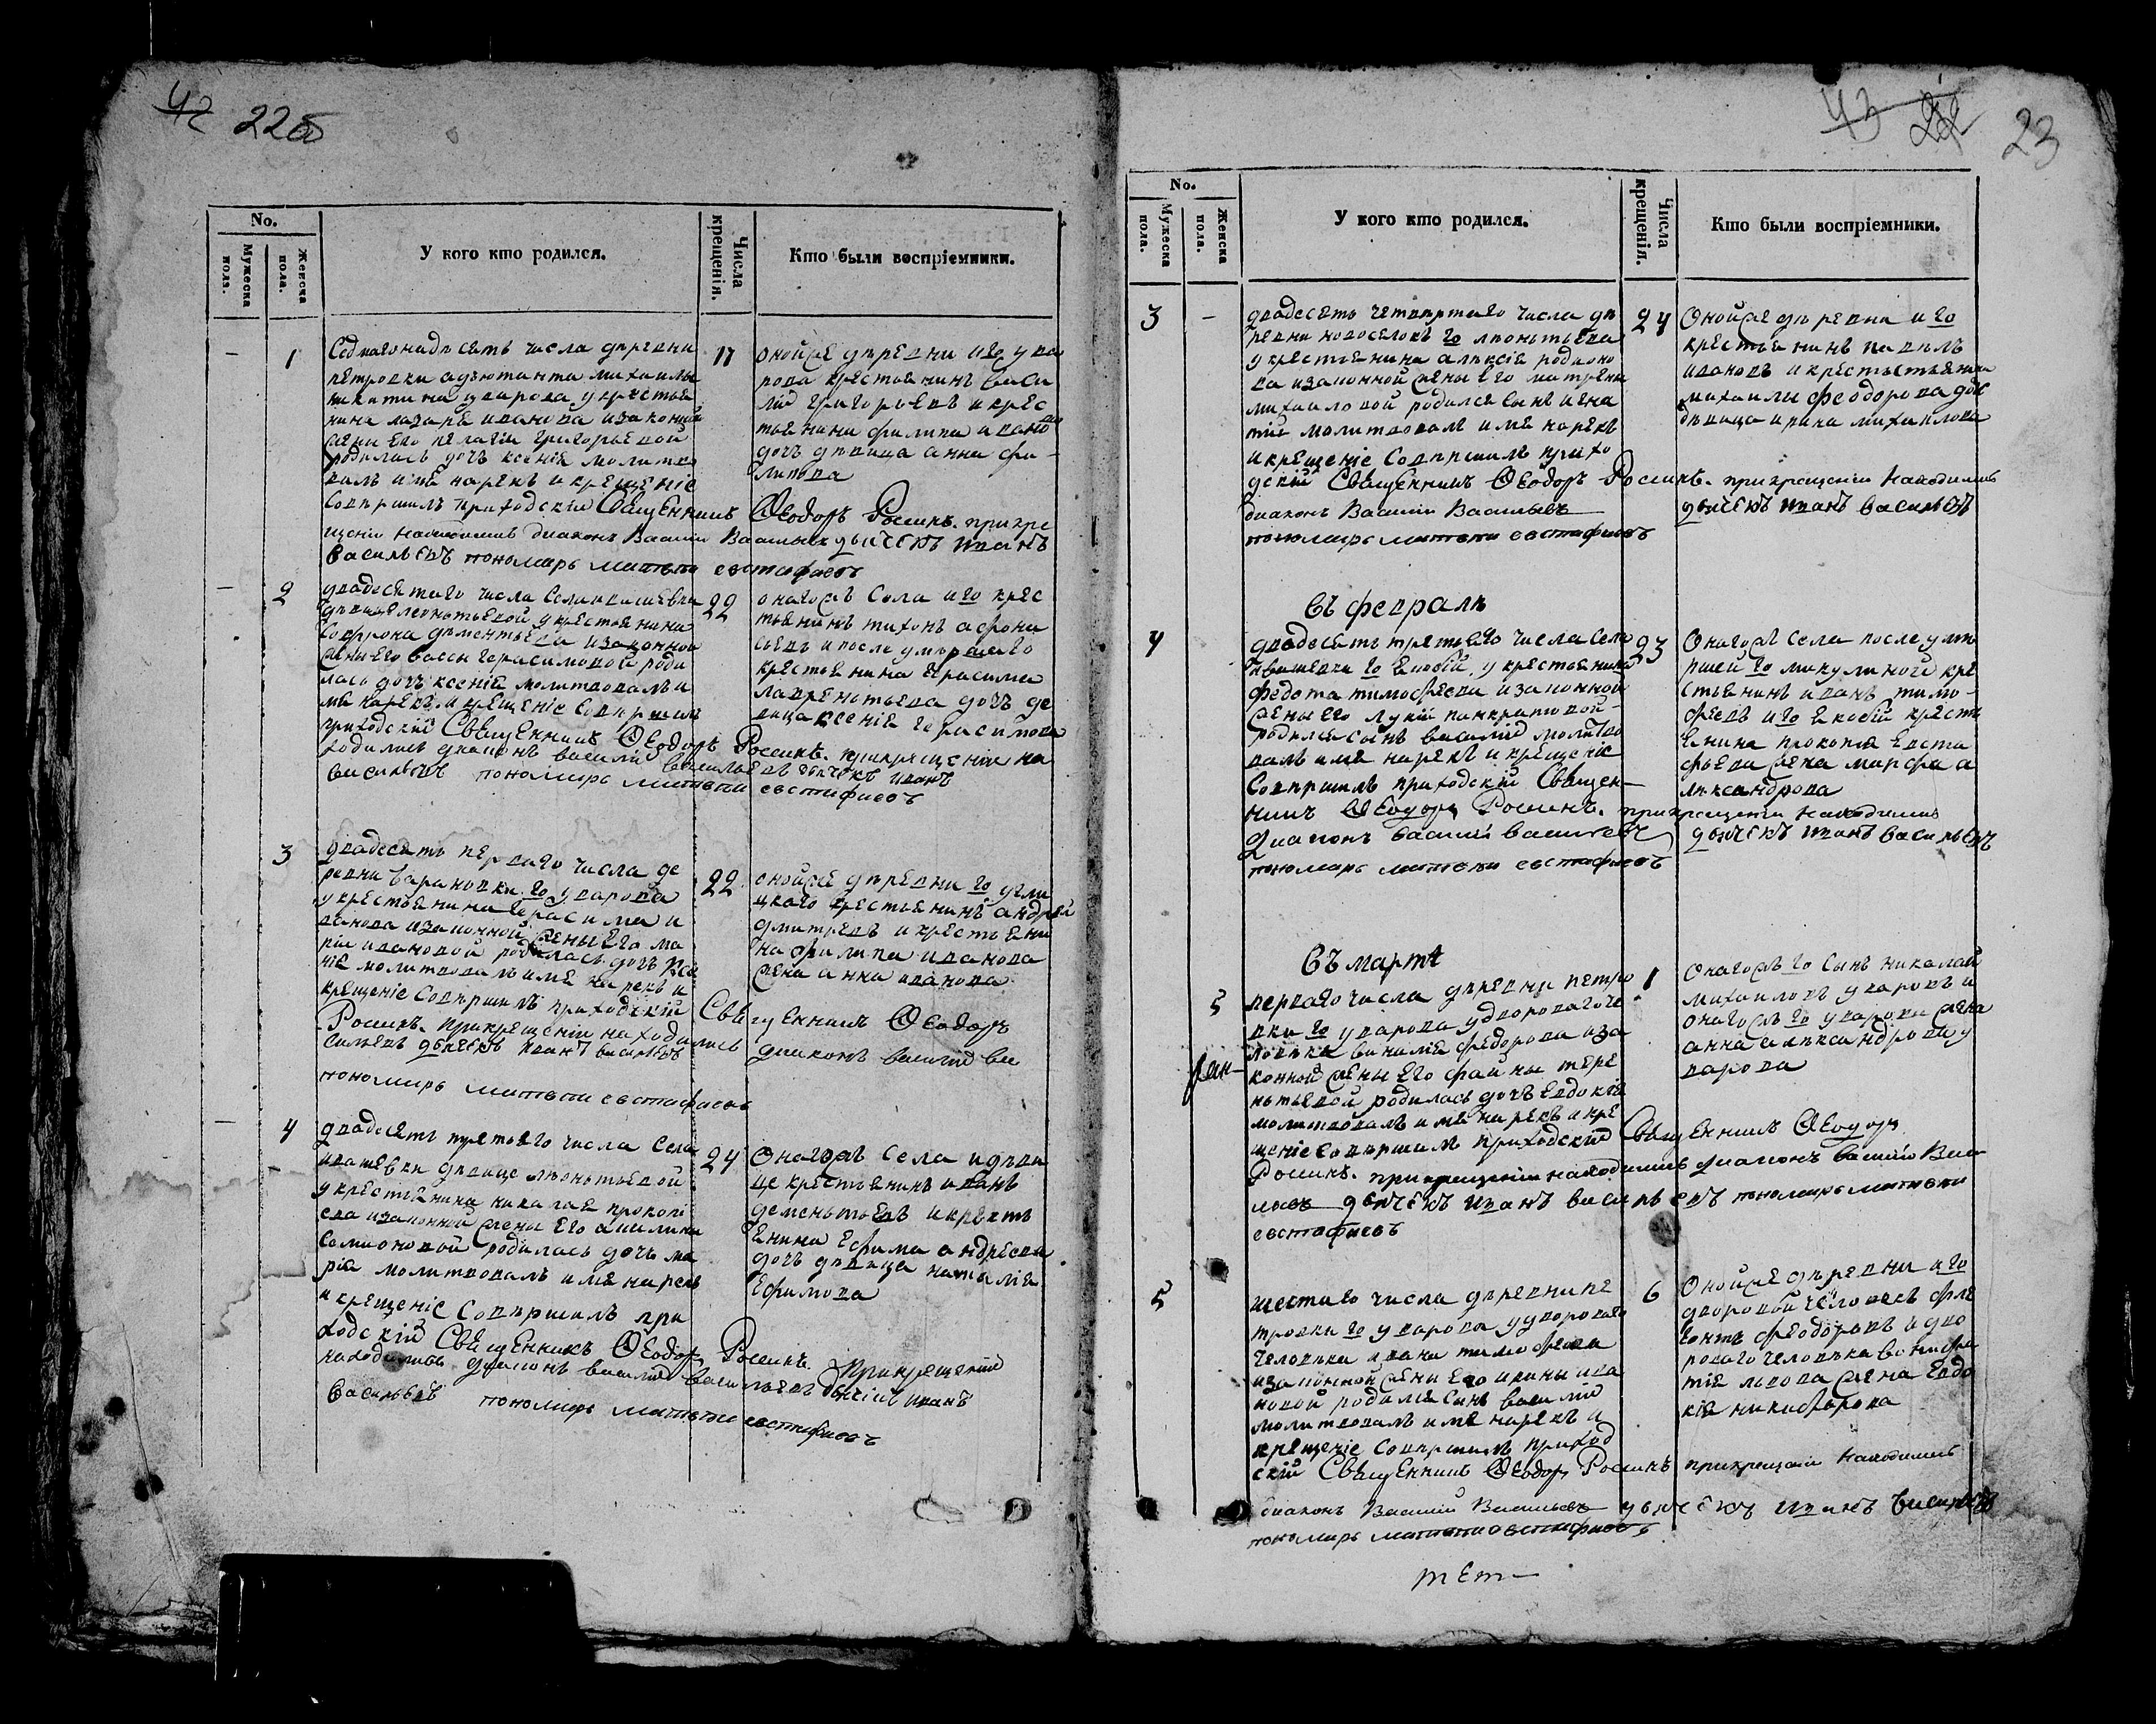 42 22об
No.
Мужеска пола.
Женска пола.
У кого кто родился.
Числа крещенія.
Кто были воспріемники.
1
Седмагонадесять числа деревни
петровки адъютанта михаилы
никитина уварова, у крестья
нина лазаря иванова и законной
жены его пелагіи григорьевой
родилась дочь ксенія молитво
валъ имя нарекъ и крещеніе
совершилъ приходскій Священникъ Ѳеодоръ Росинъ. при кре
щеніи находились диаконъ Василій Васильевъ дьячекъ иванъ
васильевъ пономарь матвей евстафиевъ
17
оной же деревни и го ува
рова крестьянинъ васи
лій григорьевъ и крес
тьянина филипа иванова
дочь девица анна фи-
липова
2
двадесятаго числа Села
девице леонтьевой у крестьянина
Софрона дементьева и законной
жены его вассы герасимовой роди
лась дочь ксенія молитвовалъ и
мя нарекъ и крещеніе совершилъ
приходскій Священникъ Ѳеодоръ Росинъ. при крещеніи на
ходились диаконъ василій васильевъ дьячекъ иванъ
васильевъ пономарь матвей евстафиевъ
22
онагожъ Села и го крес
тьянинъ тихонъ афона
сьевъ и после умершаго
крестьянина герасима
лаврентьева дочь де
вица ксенія герасимова
3
двадесять перваго числа де
ревни барановки го уварова
у крестьянина герасима и
ванова и законной жены его ма
ріи ивановой родилась дочь ксе
нія молитвовалъ имя нарекъ и
крещеніе совершилъ приходскій Священникъ Ѳеодоръ
Росинъ. при крещеніи находились диаконъ василій ва
сильевъ дьячекъ иванъ васильевъ
пономарь матвей евстафиевъ
22
оной же деревни го
крестьянинъ андрей
дмитревъ и крестьяни
на филипа иванова
жена анна иванова
4
двадесять третьяго числа Села
ивашевки девице леонтьевой
у крестьянина николая прокопи
ева и законной жены его акилины
Самсоновой родилась дочь ма
рія молитвовалъ имя нарекъ
и крещеніе Совершилъ при
ходскій Священникъ Ѳеодоръ Росинъ. При крещеніи
находились диаконъ василій васильевъ дьячекъ иванъ
васильевъ пономарь матвей евстафиевъ
24
Онагожъ Села и деви
це крестьянинъ иванъ
дементьевъ и кресть
янина Ефима андреева
дочь девица наталія
Ефимова
43 22 23
No.
Мужеска пола.
Женска пола.
У кого кто родился.
Числа крещенія.
Кто были воспріемники.
3
двадесять четвертаго числа де
ревни новоселокъ го леонтьева
у крестьянина алексія родионо
ва и законной жены его матрены
михаиловой родился сынъ игна
тій молитвовалъ имя нарекъ
и крещеніе Совершилъ прихо
дскій Священникъ Ѳеодоръ Росинъ. при крещеніи находились
диаконъ Василій Васильевъ дьячекъ иванъ васильевъ
пономарь матвей евстафиевъ
24
Оной же деревни и го
крестьянинъ павелъ
ивановъ и крестьянина
михаилы феодорова дочь
девица ирина михаилова
въ февралѣ
4
двадесять третьяго числа села
ивашевки го у крестьянина
федота тимофеева и законной
жены его лукіи панкратовой
родился сынъ василій молитво
валъ имя нарекъ и крещеніе
Совершилъ приходскій Священ-
никъ Ѳеодоръ Росинъ. при крещеніи находились
диаконъ василій васильевъ дьячекъ иванъ васильевъ
пономарь матвей евстафиевъ
23
Онагожъ Села после уме
ршей го микулиной кре
стьянинъ иванъ тимо-
феевъ и го кресть
янина прокопія Евста
фьева жена марфа а
лександрова
въ мартѣ
5
перваго числа деревни петро
вки го уварова у двороваго че
ловека федорова и за
конной жены его фаины тере
нтьевой родилась дочь Евдокія
молитвовалъ имя нарекъ и кре
щеніе совершилъ приходскій Священникъ Ѳеодоръ
Росинъ. при крещеніи находились диаконъ василій Васи
льевъ дьячекъ иванъ васильевъ пономарь матвей
евстафиевъ
1
Онагожъ го сынъ николай
михаиловъ уваровъ и
онагожъ го уварова жена
анна александрова у
варова
5
шестаго числа деревни пе
тровки го уварова у двороваго
человека ивана тимофеева
и законной жены его ирины ива
новой родился Сынъ василій
молитвовалъ имя нарекъ и
крещеніе Совершилъ приход
скій Священникъ Ѳеодоръ Росинъ при крещеніи находились
диаконъ Василій Васильевъ дьячекъ иванъ васильевъ
пономарь матвей евстафиевъ
6
Оной же деревни и го
дворовой человекъ фле
гонтъ феодоровъ и дво
роваго человека вонифа
тія львова жена Евдо
кія никифорова